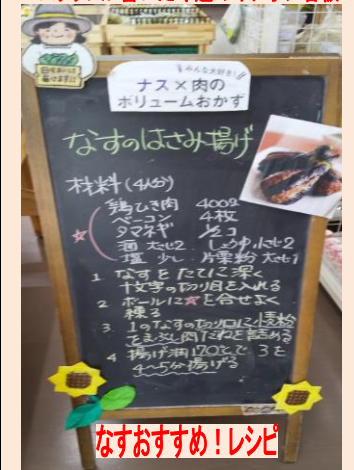 みんな大好き!
ナス×肉の
ボリュームおかず
なすのはさみ揚げ
材料(4人分)
鶏ひき肉 400g
ベーコン 4枚
タマネギ 1/2コ
酒 大さじ2 しょうゆ 小さじ2
塩 少し 片栗粉 大さじ1
1 なすをたてに深く
十文字の切り目を入れる
2 ボールに☆を合せよく
練る
3. 1のなすの切り口に小麦粉
をまぶし肉だねを詰める
4 揚げ油170℃で 3を
4〜5分揚げる
なすおすすめ！レシピ